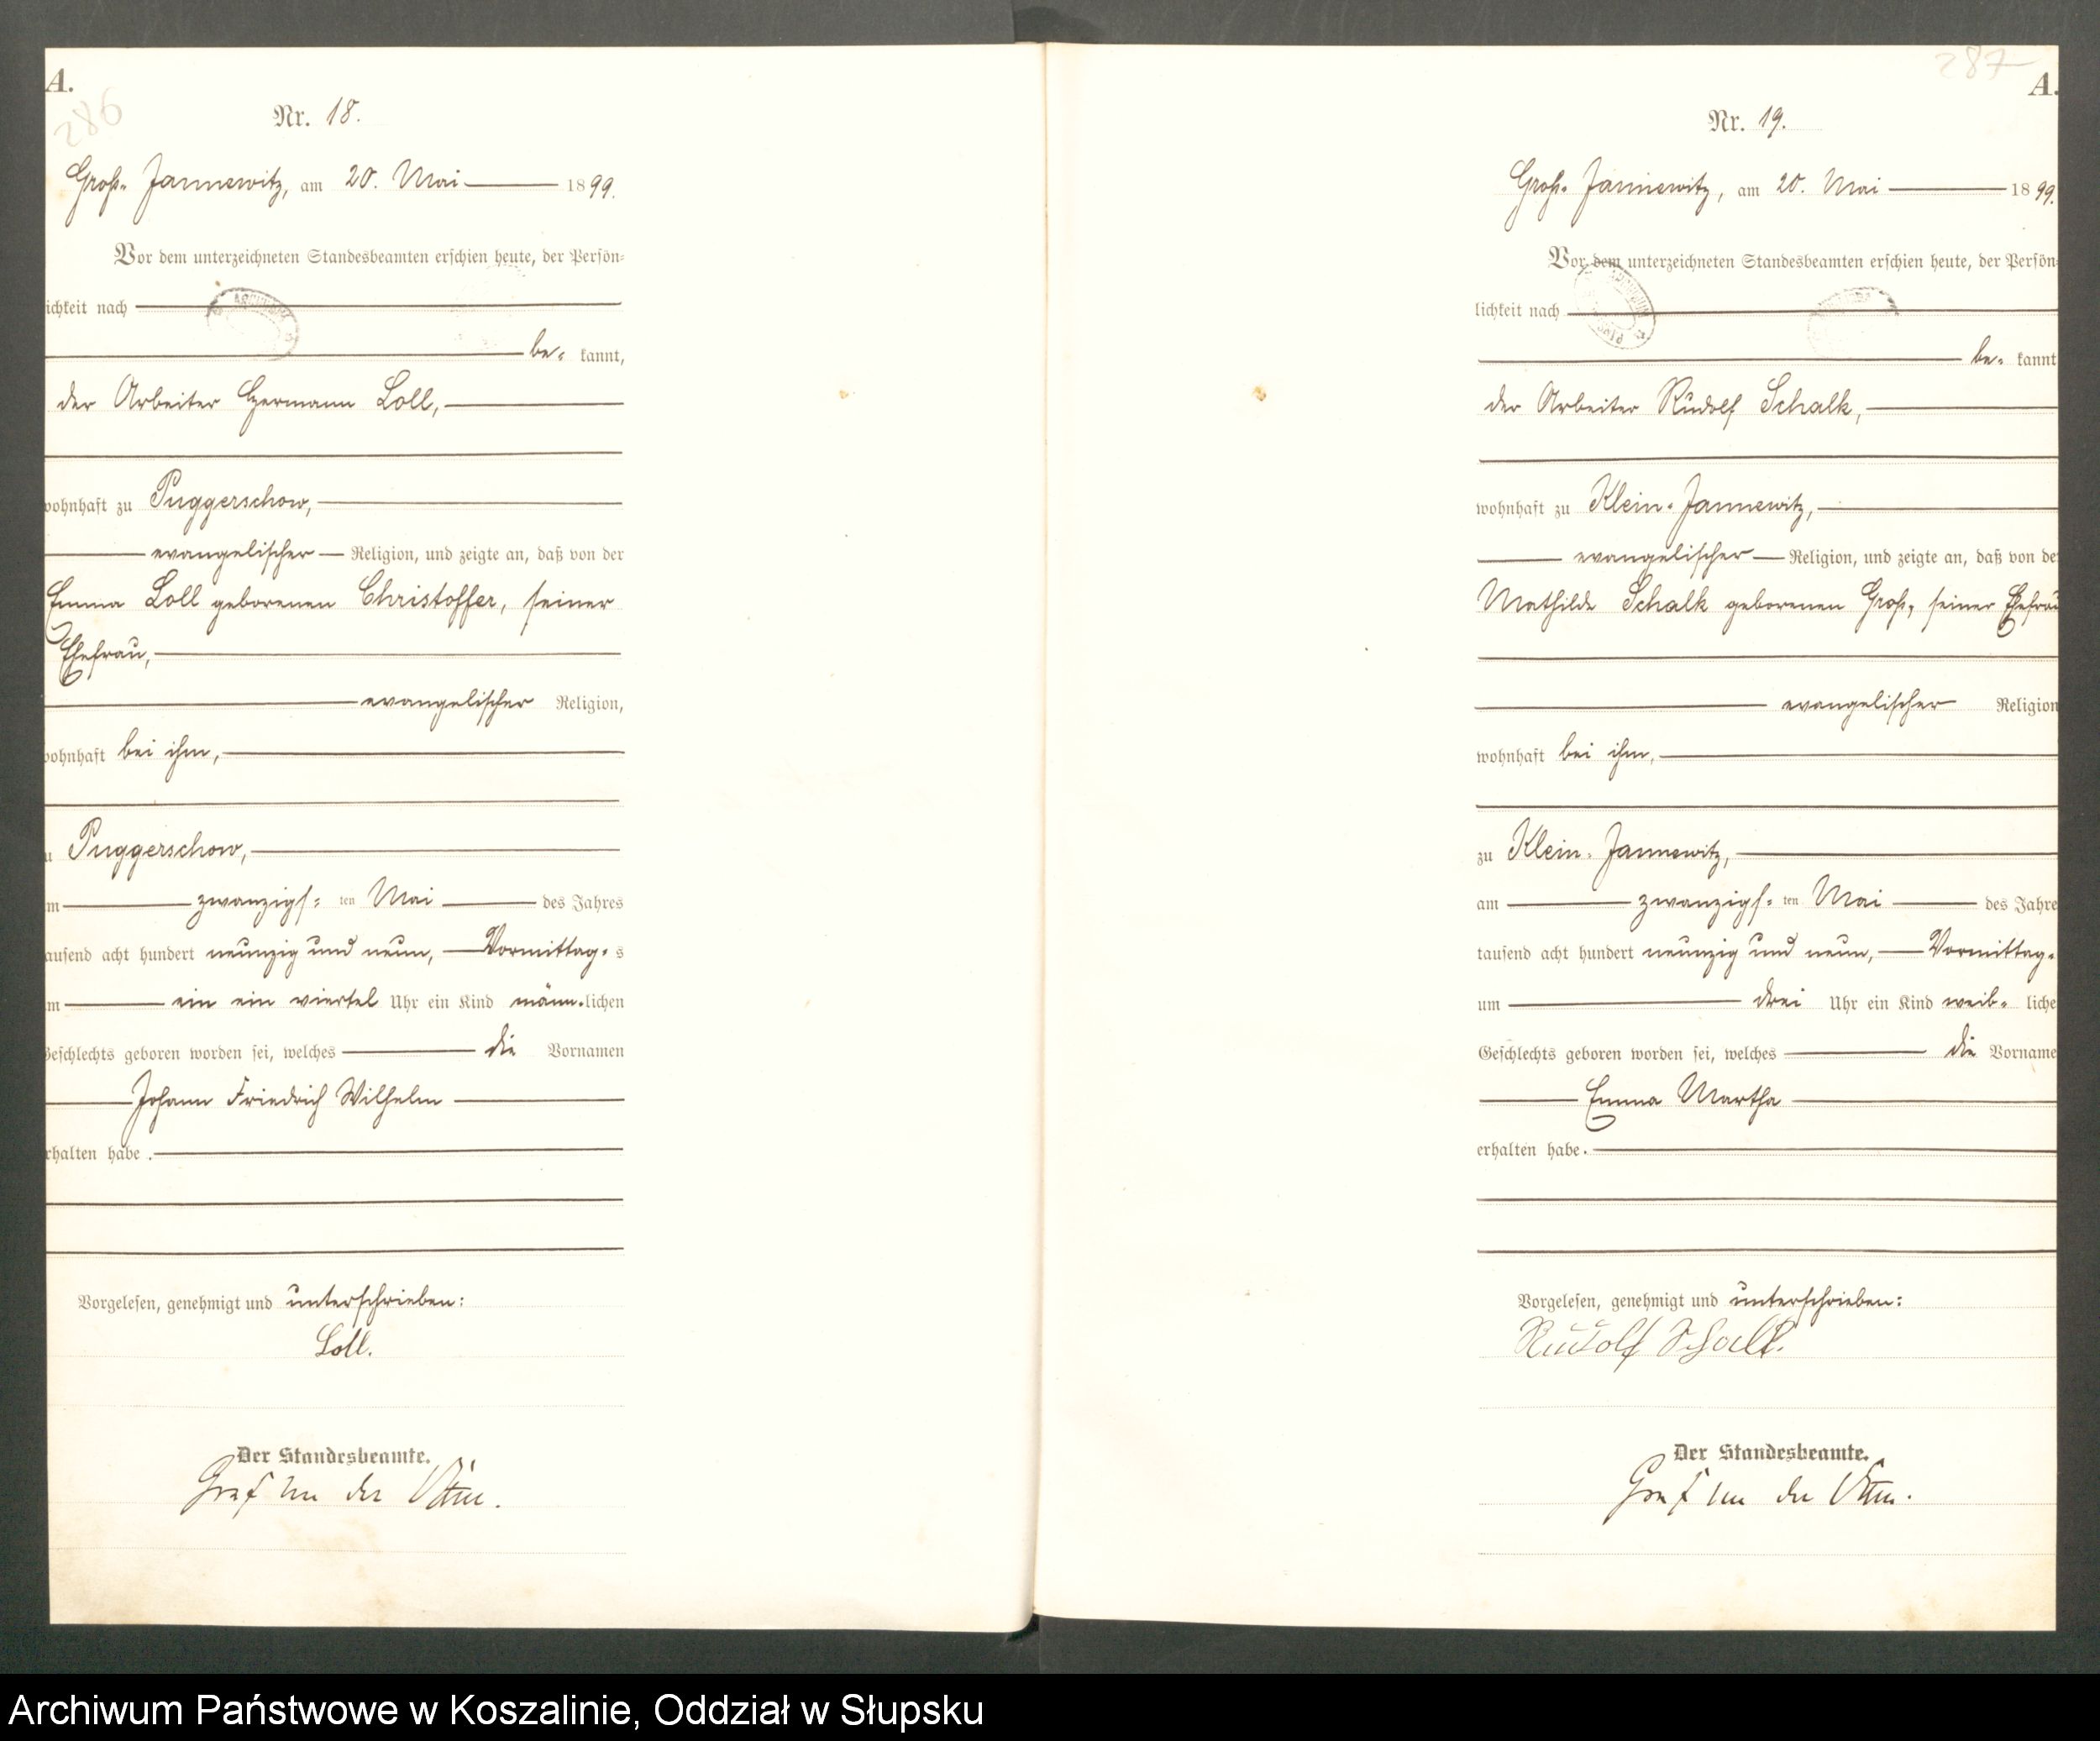 A.
286
Nr. 18.
Groß-Jannewitz, am 20. Mai 1899.
Vor dem unterzeichneten Standesbeamten erschien heute, der Persön-
ichkeit nach
be- kannt,
der Arbeiter Hermann Loll,
wohnhaft zu Puggerschow,
evangelischer Religion, und zeigte an, daß von der
Emma Loll geborenen Christoffer, seiner
Ehefrau,
evangelischer Religion,
wohnhaft bei ihm,
u Puggerschow,
m zwanzigs-ten Mai des Jahres
ausend acht hundert neunzig und neun, Vormittag-s
m ein ein viertel Uhr ein Kind männ-lichen
Geschlechts geboren worden sei, welches die Vornamen
Johann Friedrich Wilhelm
rhalten habe.
Vorgelesen, genehmigt und unterschrieben:
Loll.
Der Standesbeamte.
Graf
287
A.
Nr. 19.
Groß-Jannewitz, am 20. Mai 1899.
Vor dem unterzeichneten Standesbeamten erschien heute, der Persön
lichkeit nach
be- kannt
der Arbeiter Rudolf Schalk,
wohnhaft zu Klein-Jannewitz,
evangelischer Religion, und zeigte an, daß von de
Mathilde Schalk geborenen Groß, seiner Ehefrau
evangelischer Religion
wohnhaft bei ihm,
zu Klein-Jannewitz,
am zwanzigs-ten Mai des Jahre
tausend acht hundert neunzig und neun, Vormittag-
um drei Uhr ein Kind weib- liche
Geschlechts geboren worden sei, welches die Vorname
Emma Martha
erhalten habe.
Vorgelesen, genehmigt und unterschrieben:
Rudolf Schalk.
Der Standesbeamte.
Graf
Archiwum Państwowe w Koszalinie, Oddział w Słupsku